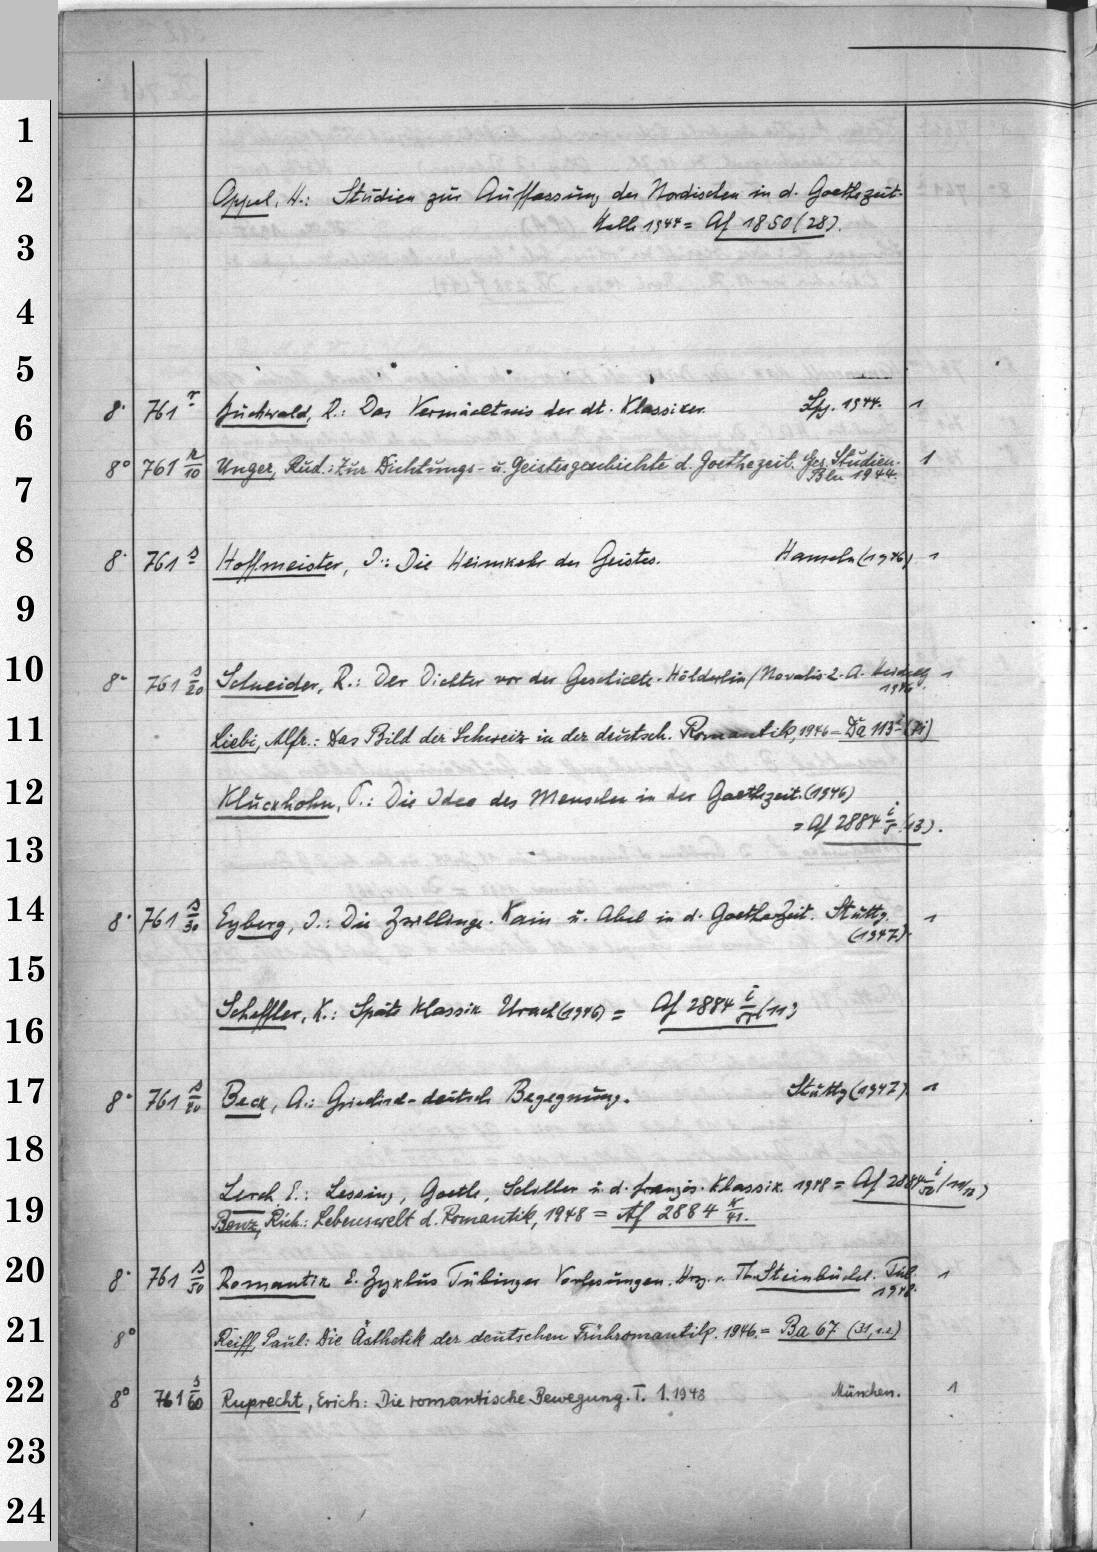 1
2
Appel, H.: Studien zur Auffassung des Nordischen in d. Goethezeit.
Halle 1944 = Af 1850 (28).
3
4
5
6
8° 761 r Buchwald, R.: Das Vermächtnis der dt. Klassiker. Lpz. 1944. 1
8° 761 r/10 Unger, Rud.: Zur Dichtungs- u. Geistesgeschichte d. Goethezeit. Ges. Studien. 1
Bln 1944.
7
8
8° 761 s Hoffmeister, J.: Die Heimkehr des Geistes. Hameln (1946) 1
9
10
8° 761 s/20 Schneider, R.: Der Dichter vor der Geschichte. Hölderlin / Novalis 2. A. 1
1946.
11
Liebi, Alfr.: Das Bild der Schweiz in der deutsch. Romantik, 1946 = Da 113 i (71)
12
Kluckhohn, P.: Die Idee des Menschen in der Goethezeit. (1946)
= Af 2884 i/5 (13).
13
14
8° 761 s/30 Eyberg, J.: Die Zwillinge. Kain u. Abel in d. Goethezeit. Stuttg. 1
(1947).
15
Scheffler, K.: Späte Klassik Urach (1946) = Af 2884 i/55 (11)
16
17
8° 761 s/40 Beck, A.: Griechisch-deutsch Begegnung. Stuttg (1947). 1
18
Lerch E.: Lessing, Goethe, Schiller u. d. französ. Klassik. 1948 = Af 2884 i/50 (11/12)
19
Benz, Rich.: Lebenswelt d. Romantik, 1948 = Af 2884 k/41.
20
8° 761 s/50 Romantik E. Zyklus Tübinger Vorlesungen. Hrg. v. Th. Steinbüchel. Tüb. 1
1948.
21
8° Reiff, Paul: Die Ästhetik der deutschen Frühromantik. 1946. = Ba 67 (31, 1.2)
22
8° 761 s/60 Ruprecht, Erich: Die romantische Bewegung. T. 1. 1948 München. 1
23
24